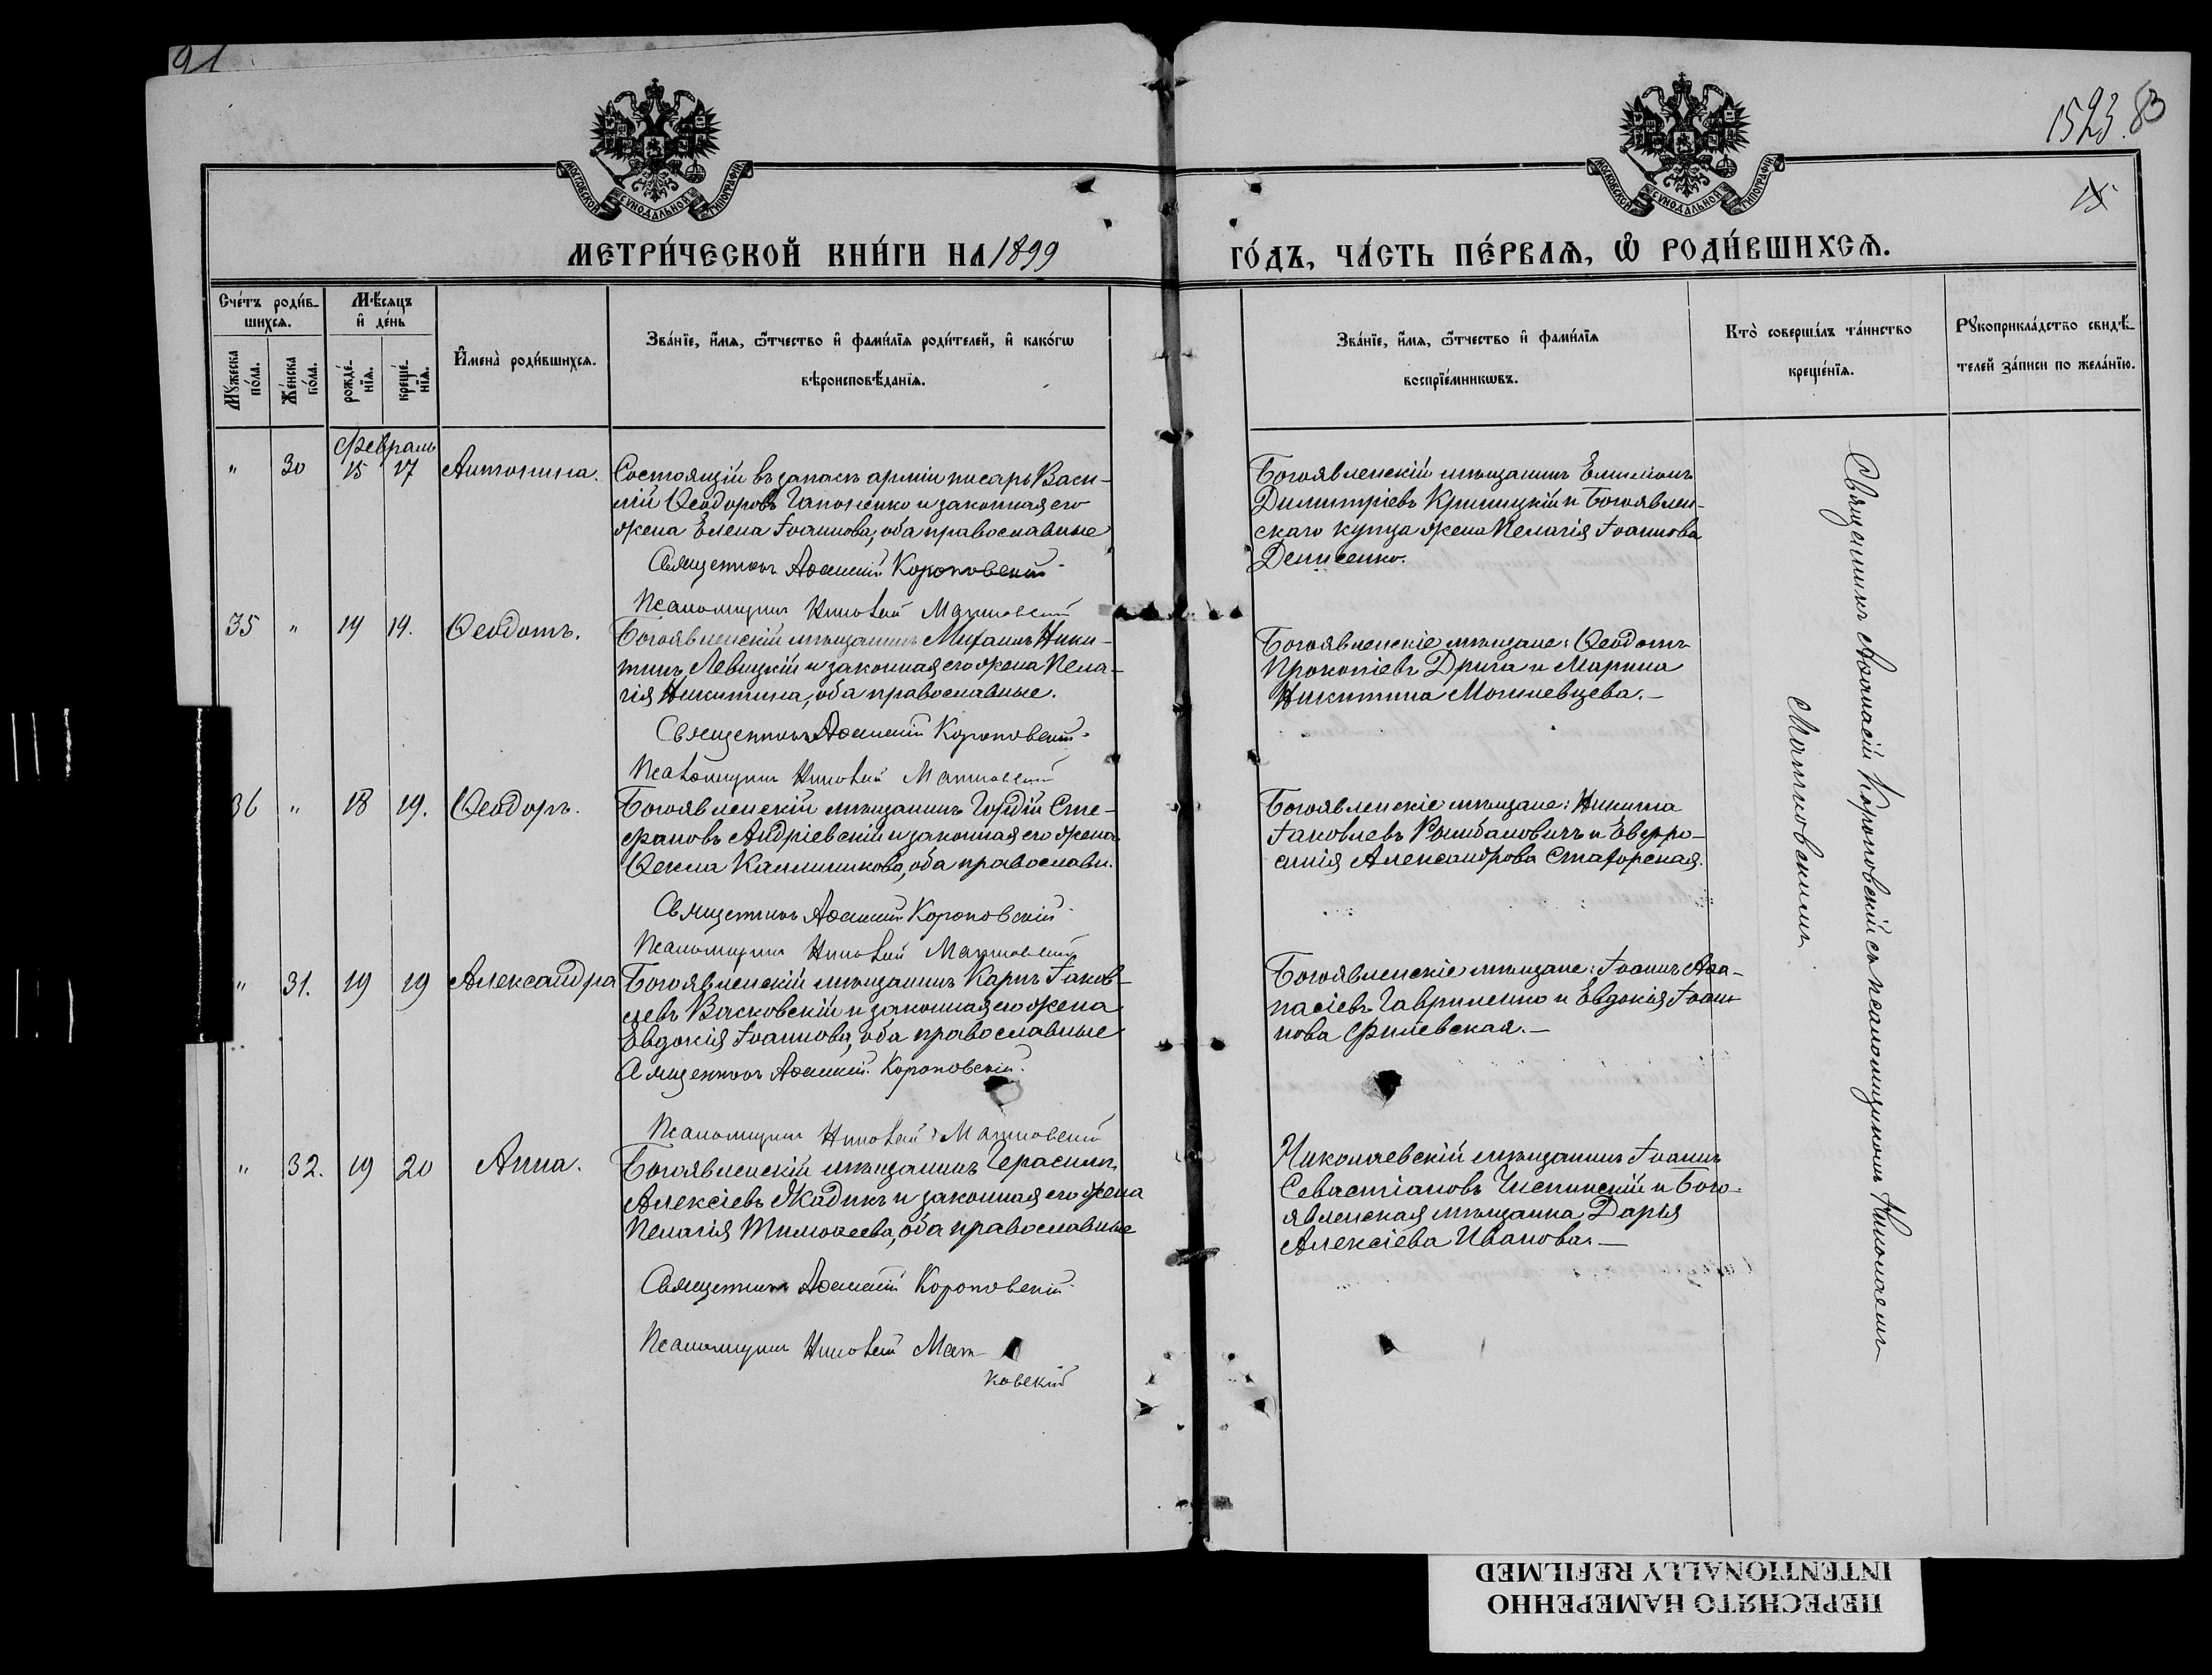 91
1523. 83
МОСКОВСКОЙ СѴНОДАЛЬНОЙ ТИПОГРАФІИ
МОСКОВСКОЙ СѴНОДАЛЬНОЙ ТИПОГРАФІИ
МЕТРИ́ЧЕСКОЙ КНИ́ГИ НА 1899
ГО́ДЪ, ЧА́СТЬ ПЕ́РВАѦ, Ѡ РОДИ́ВШИХСѦ.
Сче́тъ роди́в-
шихсѧ.
Мѣ́сяцъ
и де́нь
Мꙋжеска
по́ла.
Же́нска
по́ла.
рожде́-
нїѧ.
креще́-
нїѧ.
Имена̀ роди́вшихсѧ.
Зва́нїе, и́мѧ, ѻ҆́тчество и фами́лїѧ роди́телей, и како́гѡ
вѣроисповѣ́данїѧ.
Зва́нїе, и́мѧ, ѻ҆́тчество и фами́лїѧ
воспрїе́мникѡвъ.
Кто̀ соверша́лъ та́инство
креще́нїѧ.
Рꙋкоприкла́дство свидѣ́-
телей за́писи по жела́нїю.
Февраль
" 30 15 17 Антонина.
Состоящій въ запасѣ арміи писарь Васи-
лій Ѳеодоровъ Гапоненко и законная его
жена Елена Іоаннова, оба православные
Священникъ Аѳанасій Короповскій
Псаломщикъ Николай Матковскій
Богоявленскій мѣщанинъ Емиліанъ
Димитріевъ Криницкій и Богоявлен-
скаго купца жена Пелагія Іоаннова
Денисенко.
35 " 14 19. Ѳеодотъ.
Богоявленскій мѣщанинъ Михаилъ Ники-
тинъ Левицкій и законная его жена Пела-
гія Никитина, оба православные.
Священникъ Аѳанасій Короповскій
Псаломщикъ Николай Матковскій
Богоявленскіе мѣщане: Ѳеодотъ
Прокопіевъ Дрига и Марина
Никитина Могилевцева.—
36 " 18 19. Ѳеодоръ.
Богоявленскій мѣщанинъ Гордій Сте-
фановъ Андріевскій и законная его жена
Ѳекла Каллиникова, оба православн.
Священникъ Аѳанасій Короповскій
Псаломщикъ Николай Матковскій
Богоявленскіе мѣщане: Никита
Іаковлевъ Рымбаловичъ и Евфро-
синія Александрова Статорская.
" 31. 19 19 Александра
Богоявленскій мѣщанинъ Карпъ Іаков-
левъ Васковскій и законная его жена
Евдокія Іоаннова, оба православные
Священникъ Аѳанасій Короповскій.
Псаломщикъ Николай Матковскій
Богоявленскіе мѣщане: Іоаннъ Аѳа-
насіевъ Гавриленко и Евдокія Іоан-
нова Филіевская.—
" 32. 19 20 Анна.
Богоявленскій мѣщанинъ Герасимъ
Алексіевъ Жадикъ и законная его жена
Пелагія Тимоѳеева, оба православные
Священникъ Аѳанасій Короповскій
Псаломщикъ Николай Мат-
ковскій
Николаевскій мѣщанинъ Іоаннъ
Севастіановъ и Бого-
явленская мѣщанка Дарья
Алексіева Иванова.—
Священникъ Аѳанасій Короповскій съ псаломщикомъ Николаемъ
Матковскимъ
ПЕРЕСНЯТО НАМЕРЕННО
INTENTIONALLY REFILMED